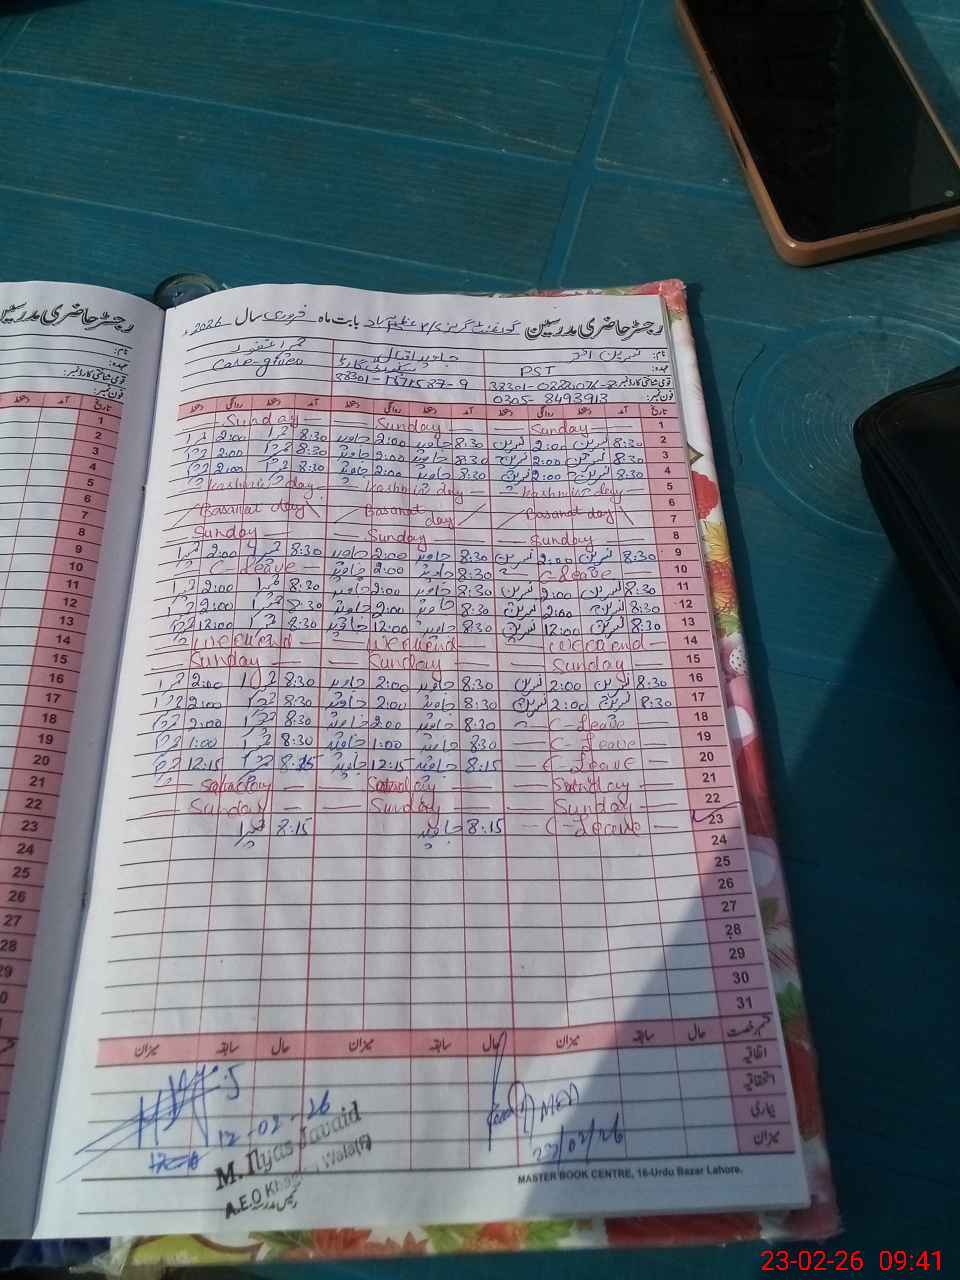 رجسٹر حاضری مدرسین
رجسٹر حاضری مدرسین گورنمنٹ گرلز بابت ماہ فروری سال 2026ء
نام: نسرین اختر جاوید اقبال
عہدہ: PST سیکیورٹی گارڈ Care-giver
قومی شناختی کارڈ نمبر:
فون نمبر: 0305-8493913
تاریخ آمد دستخط روانگی دستخط آمد دستخط روانگی دستخط آمد دستخط روانگی دستخط
1 Sunday Sunday Sunday
2 8:30 نسرین 2:00 نسرین 8:30 جاوید 2:00 جاوید 8:30 2:00
3 8:30 نسرین 2:00 نسرین 8:30 جاوید 2:00 جاوید 8:30 2:00
4 8:30 نسرین 2:00 نسرین 8:30 جاوید 2:00 جاوید 8:30 2:00
5 Kashmir day Kashmir day Kashmir day
6 Basanat day Basanat day Basanat day
7
8 Sunday Sunday Sunday
9 8:30 نسرین 2:00 نسرین 8:30 جاوید 2:00 جاوید 8:30 2:00
10 C-Leave 8:30 جاوید 2:00 جاوید C-Leave
11 8:30 نسرین 2:00 نسرین 8:30 جاوید 2:00 جاوید 8:30 2:00
12 8:30 نسرین 2:00 نسرین 8:30 جاوید 2:00 جاوید 8:30 2:00
13 8:30 نسرین 12:00 نسرین 8:30 جاوید 12:00 جاوید 8:30 12:00
14 Weekend Weekend Weekend
15 Sunday Sunday Sunday
16 8:30 نسرین 2:00 نسرین 8:30 جاوید 2:00 جاوید 8:30 2:00
17 8:30 نسرین 2:00 نسرین 8:30 جاوید 2:00 جاوید 8:30 2:00
18 C-Leave 8:30 جاوید 2:00 جاوید 8:30 2:00
19 C-Leave 8:30 جاوید 1:00 جاوید 8:30 1:00
20 C-Leave 8:15 جاوید 12:15 جاوید 8:15 12:15
21 Saturday Saturday Saturday
22 Sunday Sunday Sunday
23 C-Leave 8:15 جاوید 8:15
24
25
26
27
28
29
30
31
نمبر رخصت حال سابقہ میزان حال سابقہ میزان حال سابقہ میزان
اتفاقیہ
استحقاقیہ
بیماری
میزان
12-02-26
M. Ilyas Javaid
A.E.O
23/02/26
MASTER BOOK CENTRE, 16-Urdu Bazar Lahore.
23-02-26 09:41